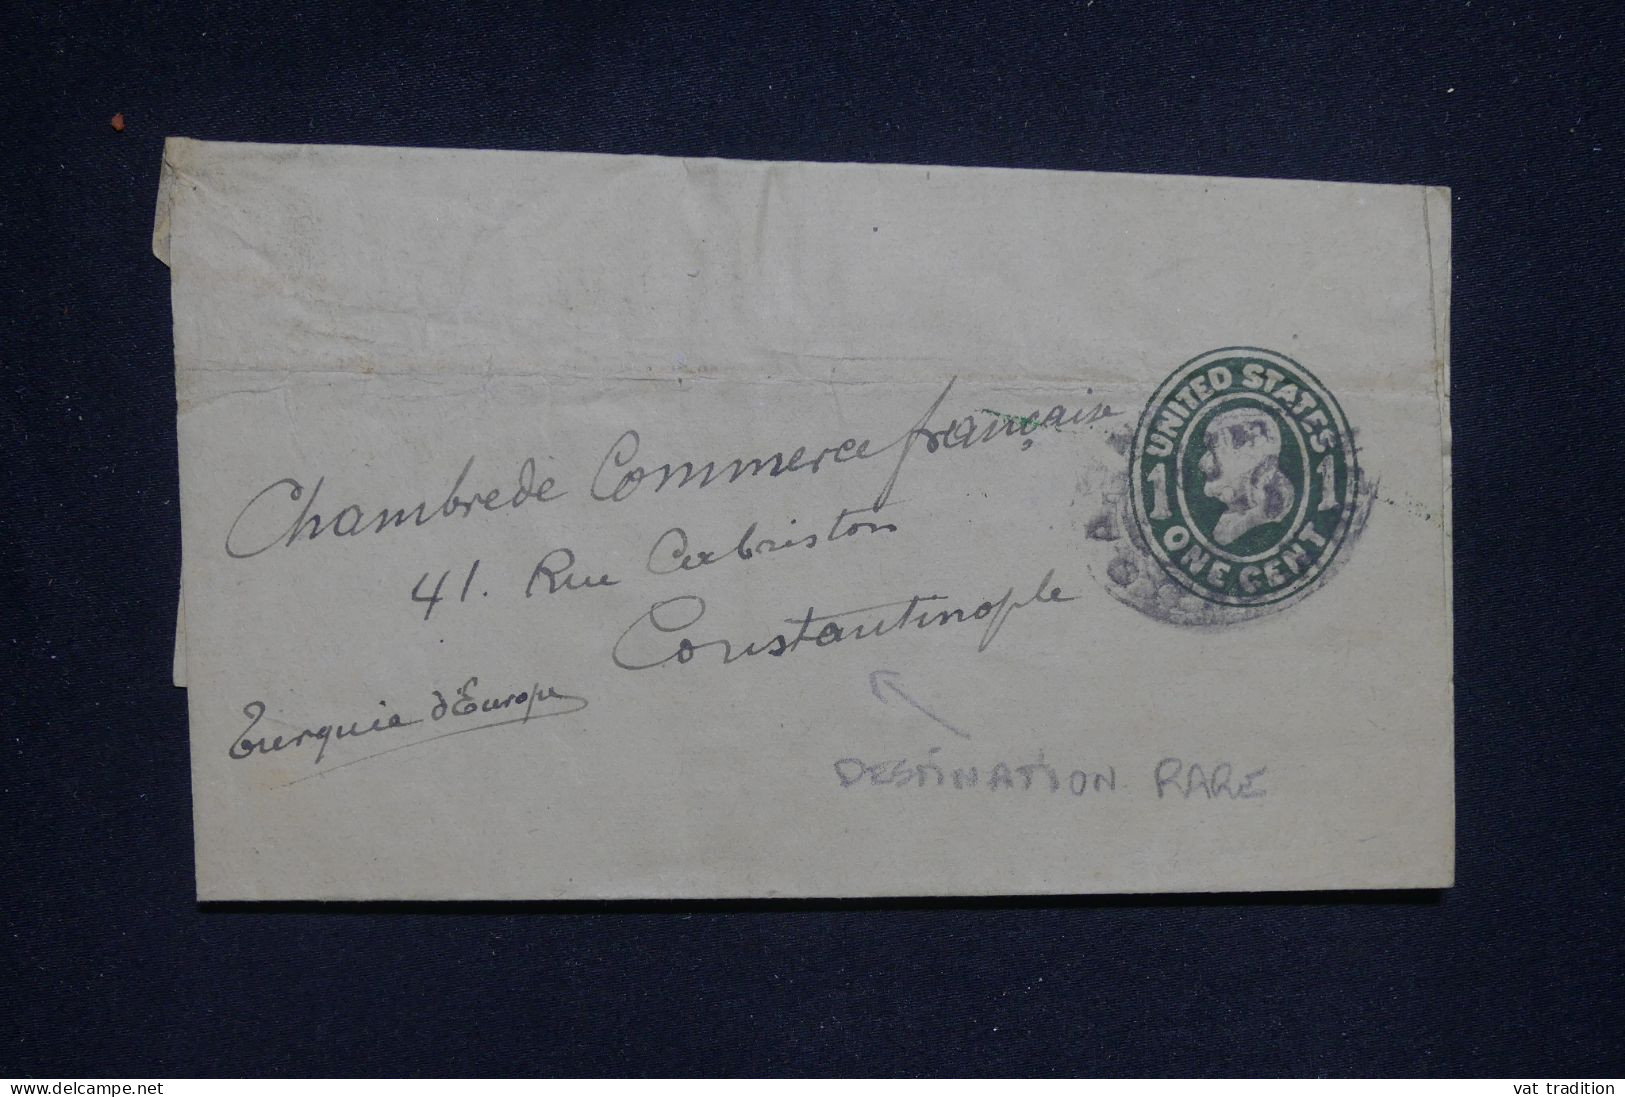 Chambre de Commerce française
41. Rue Cabriston
Constantinople
Turquie d'Europe
UNITED STATES
1 1
ONE CENT
DESTINATION RARE
www.delcampe.net
vat tradition